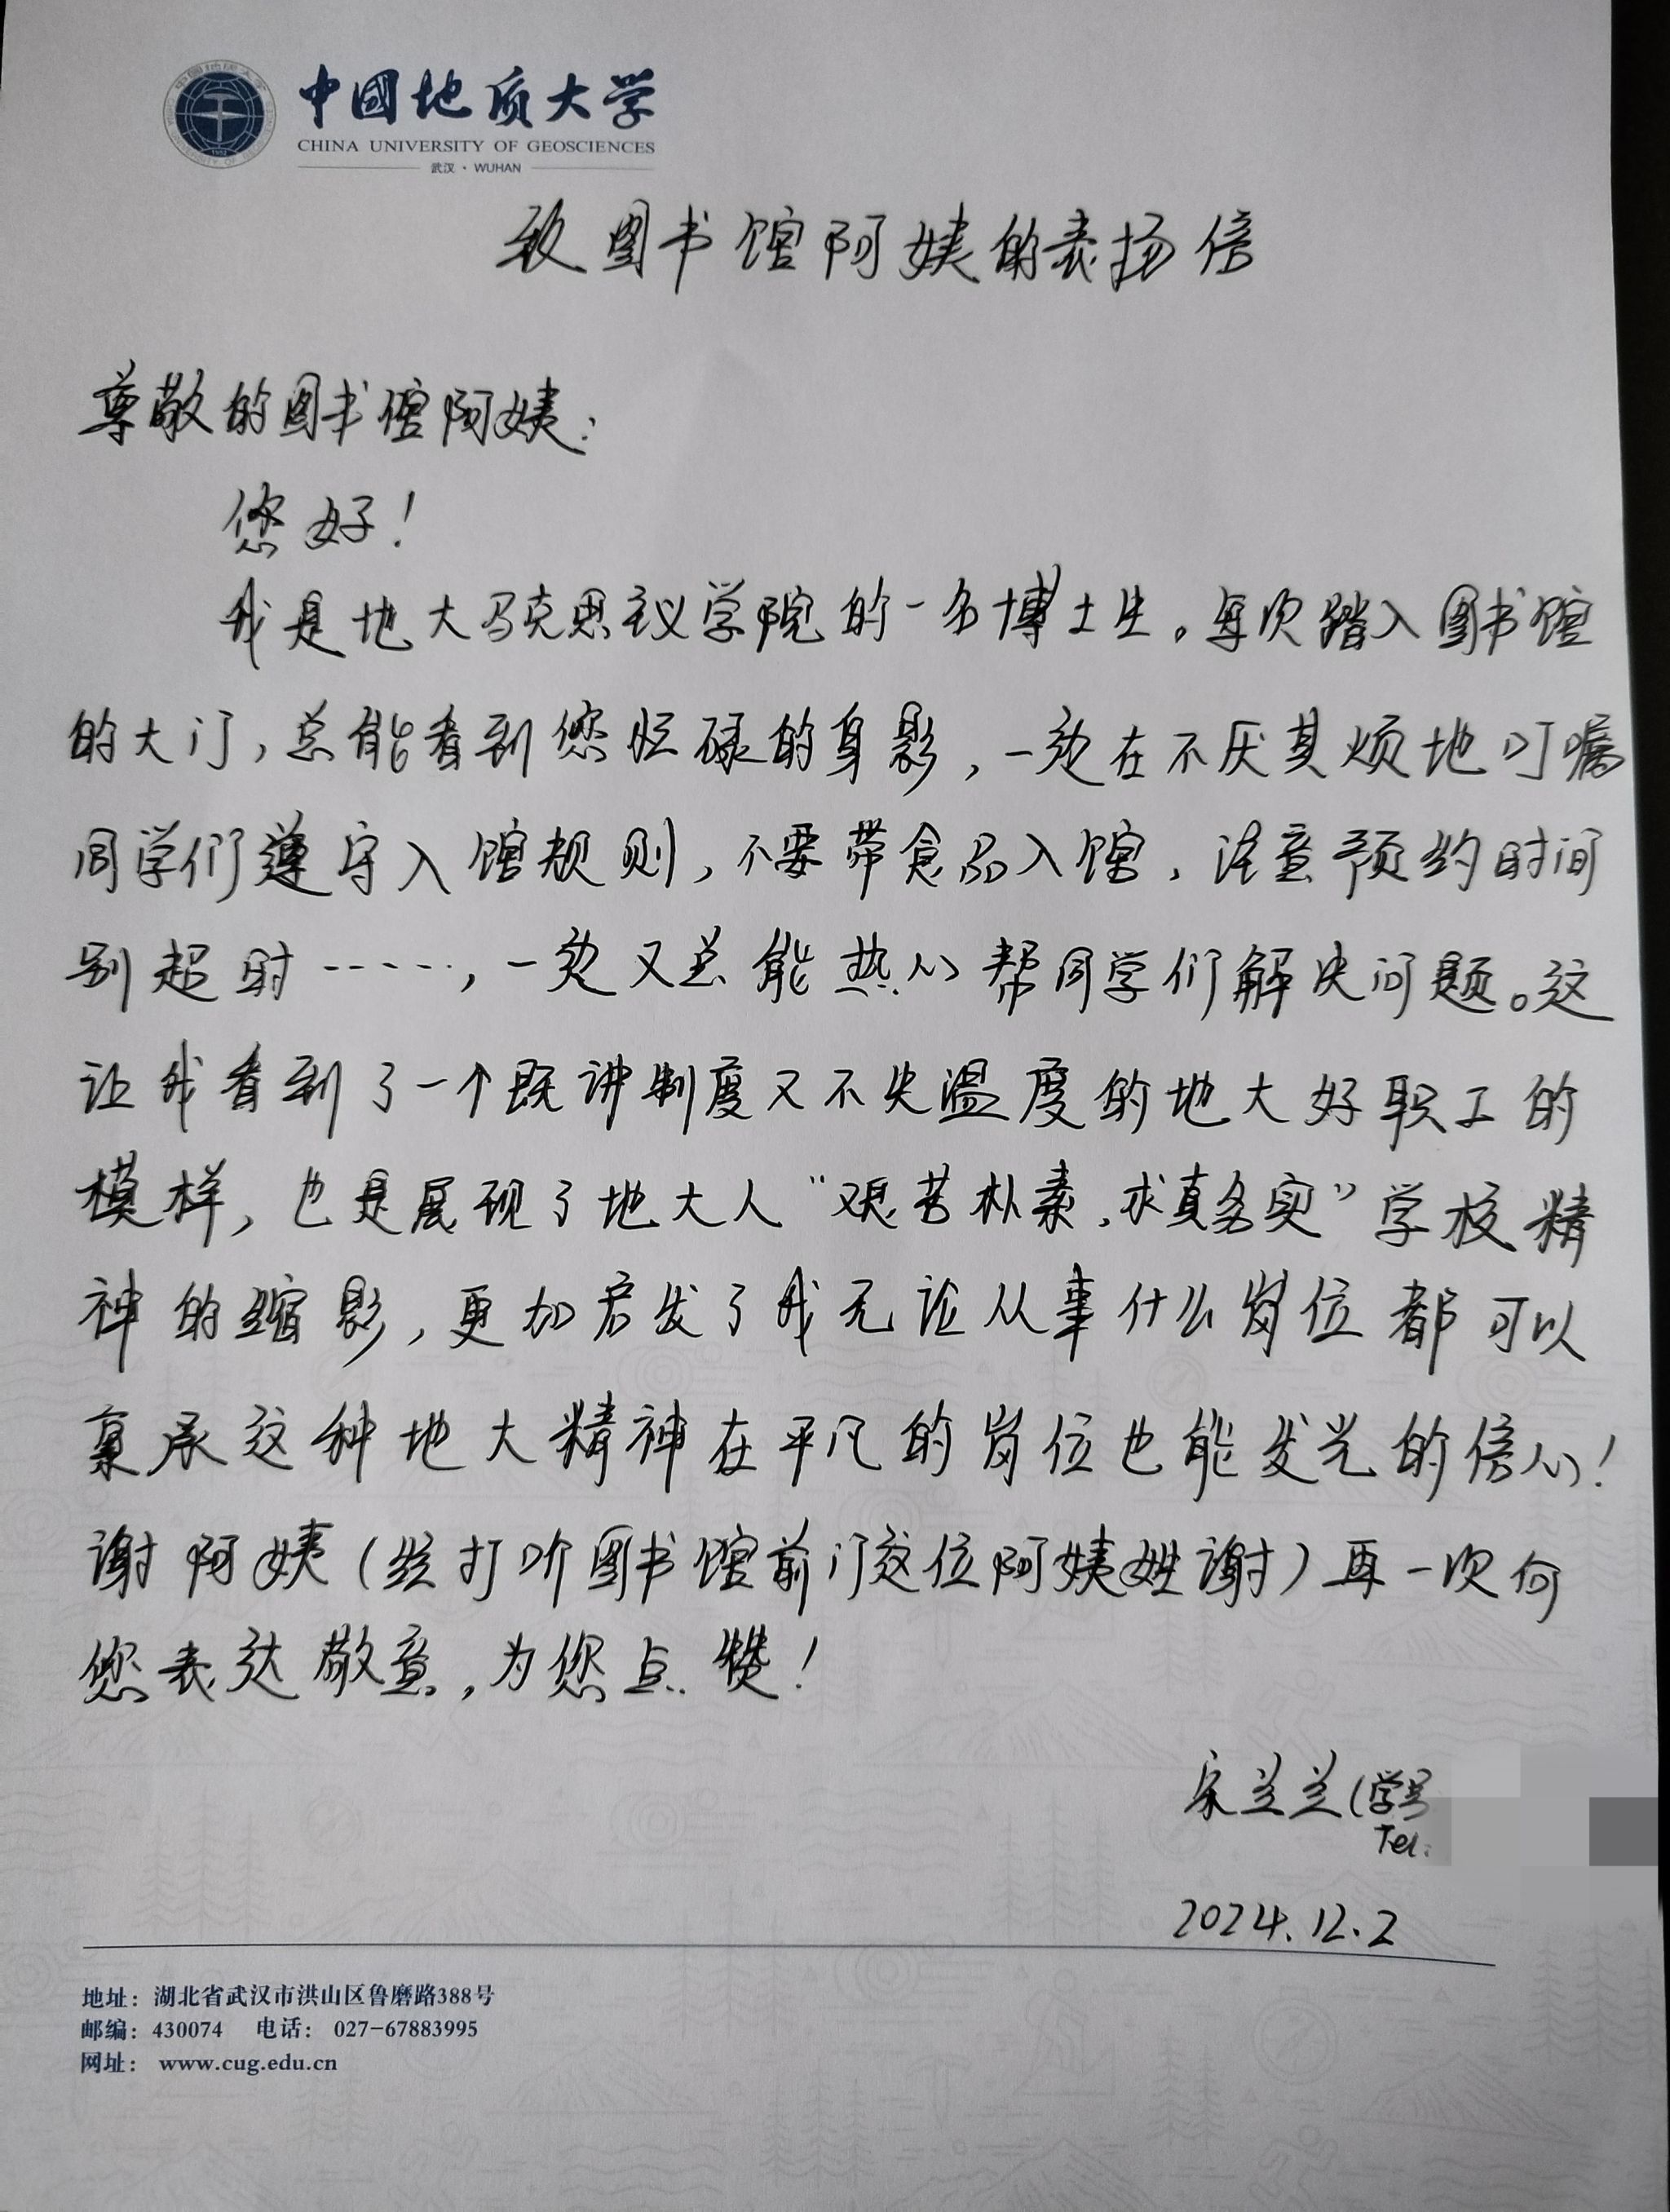 中國地质大学
CHINA UNIVERSITY OF GEOSCIENCES
武汉·WUHAN
致图书馆阿姨的表扬信
尊敬的图书馆阿姨：
您好！
我是地大马克思主义学院的一名博士生。每次踏入图书馆
的大门，总能看到您忙碌的身影，一边在不厌其烦地叮嘱
同学们遵守入馆规则，不要带食品入馆，注意预约时间
别超时……，一边又总能热心帮同学们解决问题。这
让我看到了一个既讲制度又不失温度的地大好职工的
模样，也是展现了地大人“艰苦朴素，求真务实”学校精
神的缩影，更加启发了我无论从事什么岗位都可以
秉承这种地大精神在平凡的岗位也能发光的信心！
谢阿姨（经打听图书馆前门这位阿姨姓谢）再一次向
您表达敬意，为您点赞！
宋兰兰（学号
Tel:
2024.12.2
地址：湖北省武汉市洪山区鲁磨路388号
邮编：430074 电话：027-67883995
网址：www.cug.edu.cn